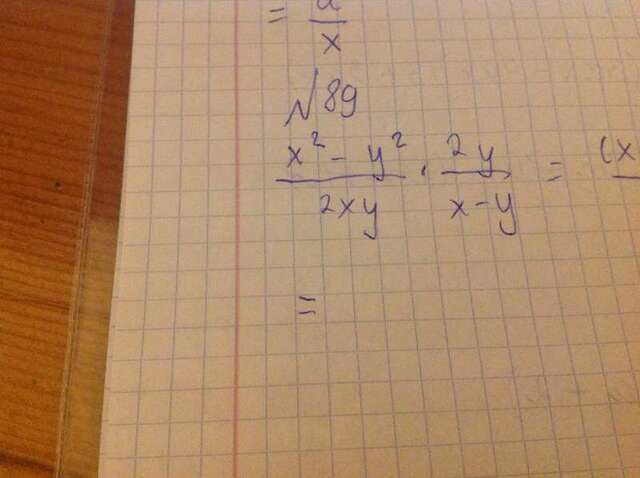 =
x
№ 89
x² - y² / 2xy · 2y / x - y = (x
=